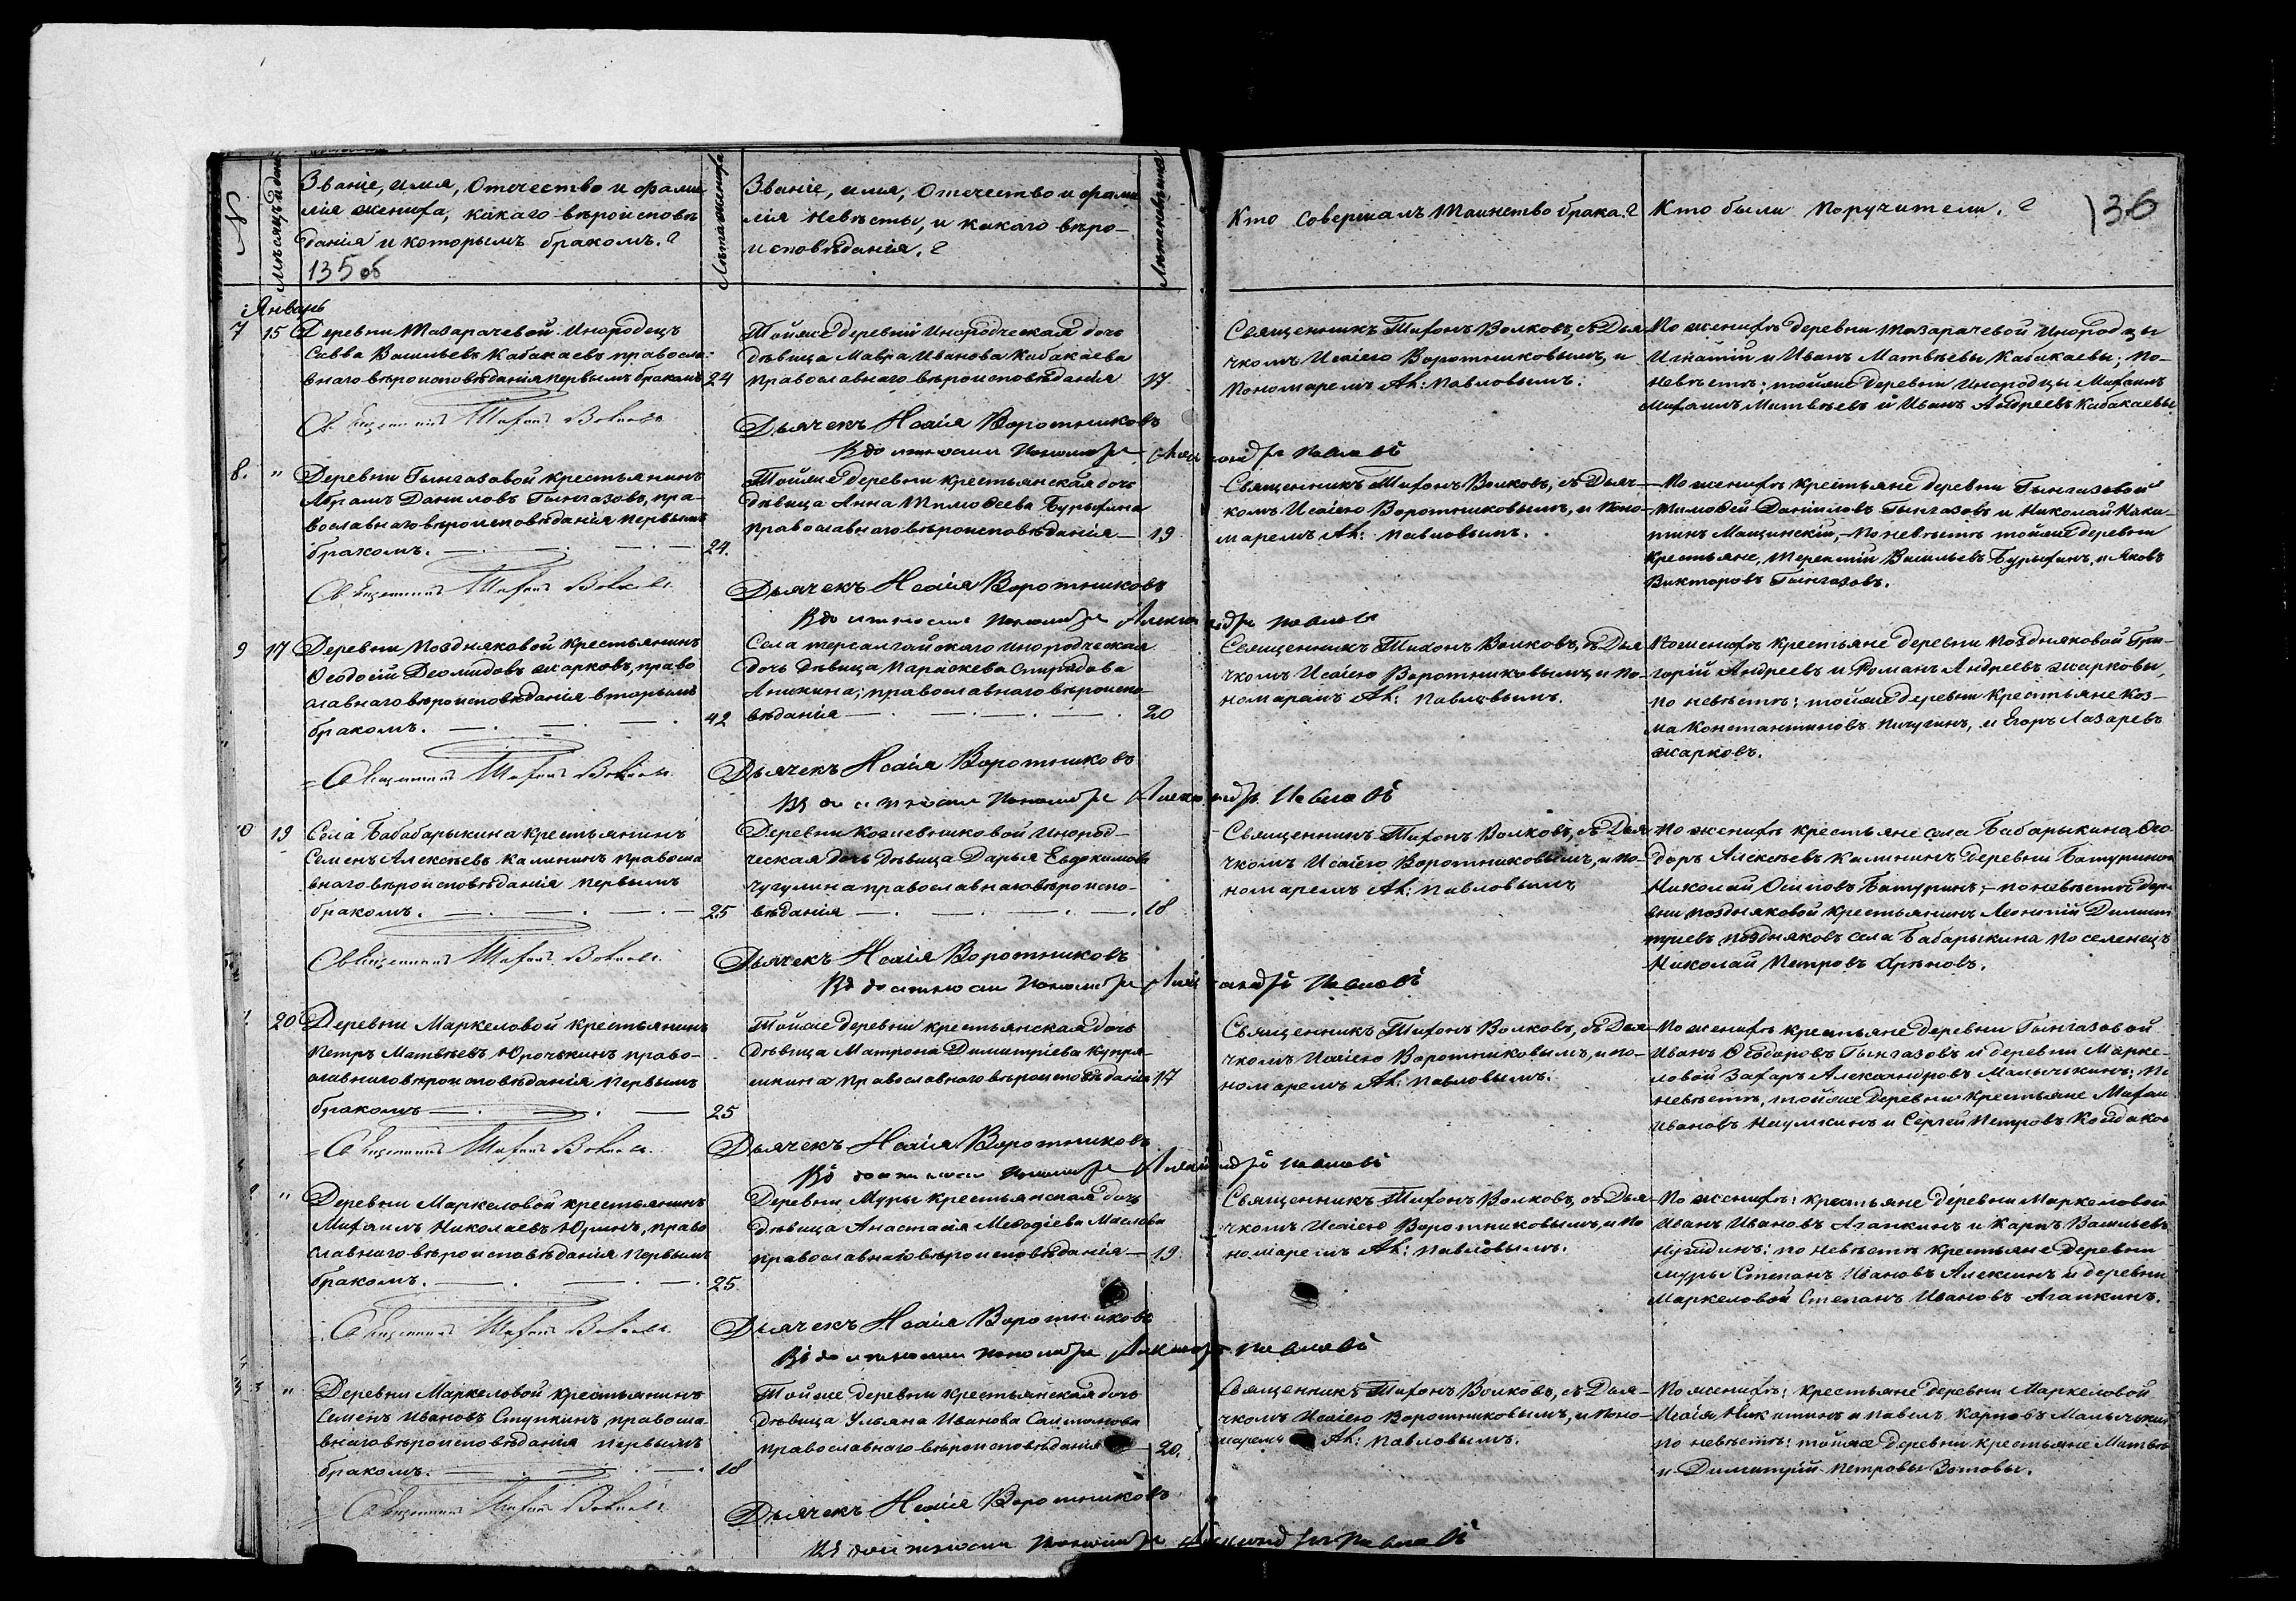 №
Мѣсяцъ и день
Званіе, имя, Отечество и фами
лія жениха, какаго вѣроисповѣ
данія и которымъ бракомъ.?
135 об
Лѣта жениха
Званіе, имя, Отечество и фами
лія Невѣсты, и какаго вѣро-
исповѣданія.?
Лѣта невѣсты
Кто Совершалъ Таинство брака.?
Кто были Поручители.?
136
Январь
7
15
Деревни Тазарачевой Инородецъ
Савва Васильевъ Кабакаевъ правосла-
внаго вѣроисповѣданія первымъ бракомъ
24
Тойже деревни Инородческая дочь
дѣвица Мавра Иванова Кабакаева
православнаго вѣроисповѣданія
17
Священникъ Тихонъ Волковъ, съ Дья
чкомъ Исаіею Воротниковымъ, и
Пономаремъ Ал: Павловымъ.
По женихѣ деревни Тазарачевой Инородцы
Игнатій и Иванъ Матвѣевы Кабакаевы; по-
невѣстѣ: тойже деревни Инородцы Михаилъ
Михаилъ Матвѣевъ и Иванъ Андреевъ Кабакаевы
Священникъ Тихонъ Волковъ
Дьячекъ Исаія Воротниковъ
В должности Пономаря Александръ Павловъ
8.
"
Деревни Тынгазовой крестьянинъ
Абрамъ Даниловъ Тынгазовъ, пра-
вославнаго вѣроисповѣданія первымъ
бракомъ.
24.
Тойже деревни крестьянская дочь
дѣвица Анна Тимоѳеева Бурыхина
православнаго вѣроисповѣданія
19
Священникъ Тихонъ Волковъ, съ Дьяч-
комъ Исаіею Воротниковымъ, и Поно-
маремъ Ал: Павловымъ.
По женихѣ крестьяне деревни Тынгазовой
Тимоѳей Даниловъ Тынгазовъ и Николай Ники-
тинъ Мащинскій, - По невѣстѣ тойже деревни
Крестьяне, Терентій Васильевъ Бурыхинъ, и Яковъ
Викторовъ Тынгазовъ.
Священникъ Тихонъ Волковъ
Дьячекъ Исаія Воротниковъ
В должности Пономаря Александръ Павловъ
9
17
Деревни Поздняковой Крестьянинъ
Ѳеодосій Деомидовъ Жарковъ, право
славнаго вѣроисповѣданія вторымъ
бракомъ.
42
Села терсалгайскаго инородческая
дочь дѣвица Параскева Спиридова
Аникина; православнаго вѣроиспо-
вѣданія
20
Священникъ Тихонъ Волковъ, съ Дья
чкомъ Исаіею Воротниковымъ, и По-
номаремъ Ал: Павловымъ.
По женихѣ крестьяне деревни Поздняковой Гри-
горій Андреевъ и Романъ Андреевъ Жарковы,
по невѣстѣ: тойже деревни Крестьяне Коз-
ма Константиновъ Пичугинъ, и Егоръ Лазаревъ
Жарковъ.
Священникъ Тихонъ Волковъ
Дьячекъ Исаія Воротниковъ
Въ должности Пономаря Александръ Павловъ
10
19
Села Бабабарыкина крестьянинъ
Семенъ Алексѣевъ Калининъ правосла
внаго вѣроисповѣданія первымъ
бракомъ.
25
Деревни Кожевниковой инород-
ческая дочь дѣвица Дарья Евдокимова
Чугулина православнаго вѣроиспо-
вѣданія
18
Священникъ Тихонъ Волковъ, съ Дья
чкомъ Исаіею Воротниковымъ, и По-
номаремъ Ал: Павловымъ
По женихѣ крестьяне села Бабарыкина Ѳео-
доръ Алексѣевъ Калининъ деревни Батуриной
Николай Осиповъ Батуринъ; - по невѣстѣ дере
вни Поздняковой крестьянинъ Леонтій Димит
тріевъ Поздняковъ села Бабарыкина Поселенецъ
Николай Петровъ
Священникъ Тихонъ Волковъ
Дьячекъ Исаія Воротниковъ
Въ должности Пономаря Александръ Павловъ
20
Деревни Маркеловой крестьянинъ
Петръ Матвѣевъ Юрочькинъ право-
славнаго вѣроисповѣданія Первымъ
бракомъ
25
Тойже деревни крестьянская дочь
дѣвица Матрона Димитріева Купря-
шкина православнаго вѣроисповѣданія
17
Священникъ Тихонъ Волковъ, съ Дья
чкомъ Исаіею Воротниковымъ, и По-
номаремъ Ал: Павловымъ.
По женихѣ крестьяне деревни Тынгазовой
Иванъ Ѳеодоровъ Тынгазовъ и деревни Марке-
ловой Захаръ Александровъ Малычькинъ; По
невѣстѣ, тойже деревни крестьяне Михаи
Ивановъ Наумкинъ и Сергей Петровъ
Священникъ Тихонъ Волковъ
Дьячекъ Исаія Воротниковъ
Въ должности Пономаря Александръ Павловъ
"
Деревни Маркеловой крестьянинъ
Михаилъ Николаевъ Юринъ, право
славнаго вѣроисповѣданія первымъ
бракомъ.
25
Деревни Муры крестьянская дочь
дѣвица Анастасія Меѳодіева Маслова
православнаго вѣроисповѣданія
19.
Священникъ Тихонъ Волковъ, съ Дья
чкомъ Исаіею Воротниковымъ, и По
номаремъ Ал: Павловымъ.
По женихѣ: крестьяне деревни Маркеловой
Иванъ Ивановъ Агапкинъ и Карпъ Васильевъ
по невѣстѣ крестьяне деревни
муры Степанъ Ивановъ Алексинъ и деревни
Маркеловой Степанъ Ивановъ Агапкинъ.
Священникъ Тихонъ Волковъ
Дьячекъ Исаія Воротниковъ
Въ должности Пономаря Александръ Павловъ
3
"
Деревни Маркеловой Крестьянинъ
Семенъ Ивановъ Ступкинъ правосла-
внаго вѣроисповѣданія первымъ
бракомъ.
18
Тойже деревни крестьянская дочь
дѣвица Ульяна Иванова Салтанова
православнаго вѣроисповѣданія
20.
Священникъ Тихонъ Волковъ, съ Дья-
чкомъ Исаіею Воротниковымъ, и Поно-
маремъ Ал: Павловымъ.
По женихѣ: крестьяне деревни Маркеловой
Исаія Никитинъ и Павелъ Карповъ
По невѣстѣ: тойже деревни крестьяне Матвѣ
и Димитрій Петровы Зотовы.
Священникъ Тихонъ Волковъ
Дьячекъ Исаія Воротниковъ
Въ должности Пономаря Александръ Павловъ